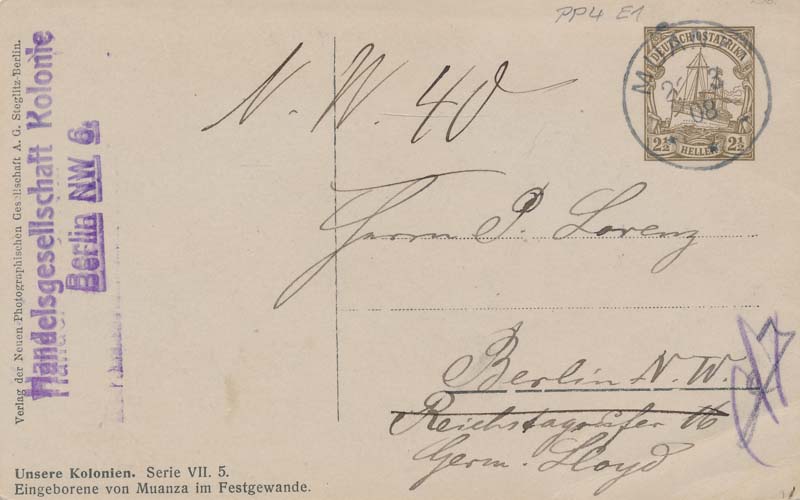 PP4 E1
DEUTSCH-OSTAFRIKA
2½ HELLER 2½
3
08
N. W. 40
Herrn P. Lorenz
Berlin N. W.
Reichstagsufer 16
Germ. Lloyd
Handelsgesellschaft Kolonie
Berlin NW 6.
Verlag der Neuen Photographischen Gesellschaft A. G. Steglitz-Berlin.
Unsere Kolonien. Serie VII. 5.
Eingeborene von Muanza im Festgewande.